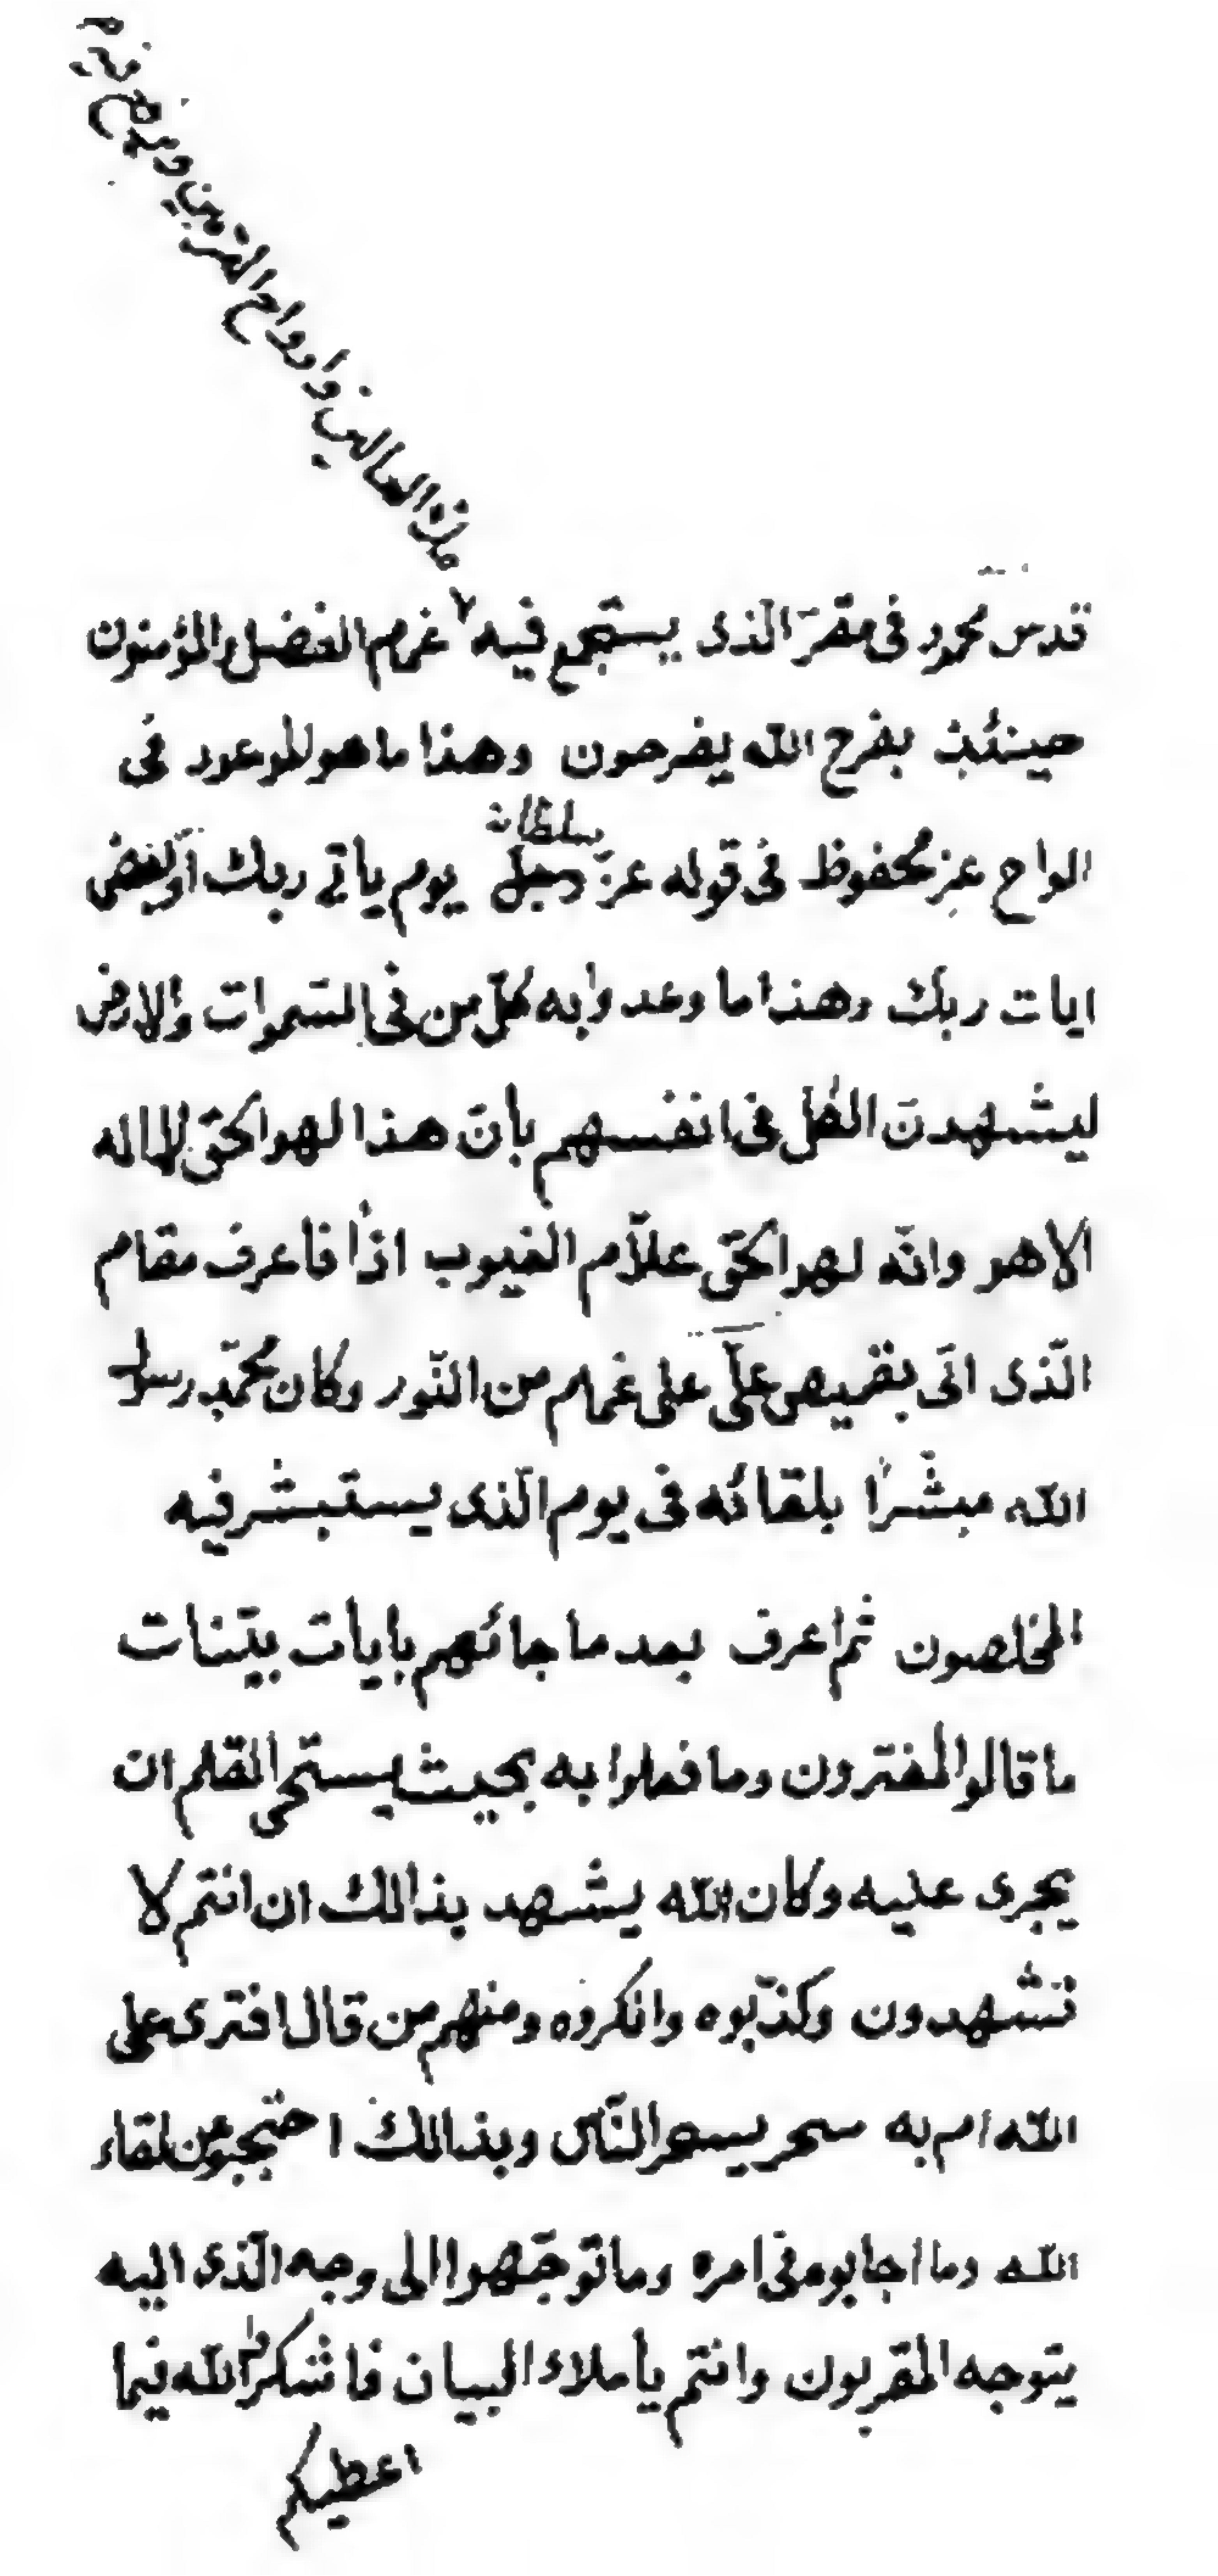 ملأ العالين وارواح المقربين ويرفع فيه
قدس محمود فى مقرّ الّذى يستجمع فيه غمام الفضل والمؤمنون
حينئذ بفرح الله يفرحون وهذا ما هو الموعود فى
الواح عز محفوظ فى قوله عزّ سلطانه وجل يوم ياتى ربك او بعض
ايات ربك وهذا ما وعدوا به كلّ من فى السّموات والارض
ليشهدنّ الكل فى انفسهم بأنّ هذا لهو الحقّ لا اله
الا هو وانّه لهو الحقّ علاّم الغيوب اذًا فاعرف مقام
الّذى اتى بقميص علىّ على غمام من النّور وكان محمّد رسول
الله مبشّرًا بلقائه فى يوم الّذى يستبشر فيه
المخلصون ثم اعرف بعد ما جائهم بايات بيّنات
ما قالوا المفترون وما فعلوا به بحيث يستحى القلم ان
يجرى عليه وكان الله يشهد بذالك ان انتم لا
تشهدون وكذّبوه وانكروه ومنهم من قال افترى على
الله ام به سحر يسحر النّاس وبذالك احتجبوا عن لقاء
الله وما اجابوه فى امره وما توجّهوا الى وجه الّذى اليه
يتوجه المقربون وانتم يا ملاء البيان فاشكروا الله فيما
اعطيكم